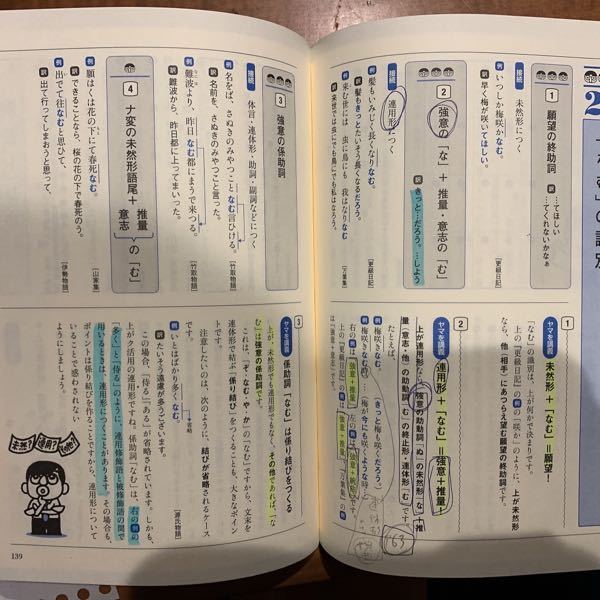 1 願望の終助詞
訳 …てほしい
…てくれないかなぁ
接続 未然形につく
例 いつしか梅咲かなむ。
[更級日記]
訳 早く梅が咲いてほしい。
2 強意の「な」+推量・意志の「む」
訳 きっと…だろう。…しよう
接続 連用形につく
例 髪もいみじく長くなりなむ。
[更級日記]
訳 髪もきっとたいそう長くなるだろう。
例 来む世には 虫に鳥にも 我はなりなむ
[万葉集]
訳 来世では虫にでも鳥にでも私はなろう。
1 ヤマを講義 未然形+「なむ」=願望!
「なむ」の識別は、上が何かで決まります。
上の『更級日記』の例の「咲か」のように、上が未然形
なら、他(相手)にあつらえ望む願望の終助詞です。
2 ヤマを講義 連用形+「なむ」=強意+推量!
上が連用形なら、強意の助動詞「ぬ」の未然形「な」+推
量(意志・他)の助動詞「む」の終止形・連体形「む」です。
たとえば、
例 梅咲きなむ。(きっと梅も咲くだろう。)
右の例は「強意+推量」、左の例は「強意+婉曲」です。
上の『更級日記』の例は「強意+推量」、『万葉集』の例
は「強意+意志」です。
163
3 強意の係助詞
接続 体言・連体形・助詞・副詞などにつく
例 名をば、さぬきのみやつことなむ言ひける。
[竹取物語]
訳 名前を、さぬきのみやつこと言った。
例 難波より、昨日なむ都にまうで来つる。
[竹取物語]
訳 難波から、昨日都に上ってまいった。
4 ナ変の未然形語尾+推量・意志の「む」
例 願はくは花の下にて春死なむ。
[山家集]
訳 できることなら、桜の花の下で春死のう。
例 出でて往なむと思ひて、
[伊勢物語]
訳 出て行ってしまおうと思って、
3 ヤマを講義 係助詞「なむ」は係り結びをつくる
上が、未然形でも連用形でもなく、その他であれば、「な
む」は強意の係助詞です。
これは、「ぞ・なむ・や・か」の「なむ」ですから、文末を
連体形で結ぶ「係り結び」をつくることも、大きなポイン
トです。
注意したいのは、次のように、結びが省略されるケース
例 いとはばかり多くなむ。
省略
[源氏物語]
訳 たいそう遠慮が多うございます。
この場合、「侍る」「ある」が省略されています。しかも、
上がク活用の連用形ですね。係助詞「なむ」は、右の例の
「多く」と「侍る」のように、連用修飾語と被修飾語の間で
用いるときは、連用形につくことがあります。その場合も、
ポイントは係り結びを作ることですから、連用形について
いることで惑わされない
ようにしましょう。
未然?
連用?
その他?
139